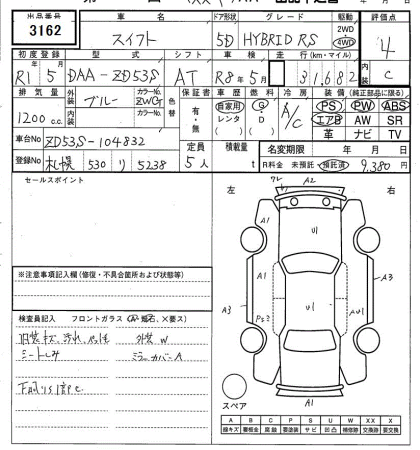 出品番号 車名 ドア形状 グレード 駆動 評価点
3162 スイフト 5D HYBRID RS 2WD 4WD 4
初度登録 型式 シフト 車検 走行 (km・マイル) 内装
R1 5 DAA-ZD53S AT R8年5月 31,682 C
排気量 外装 カラーNo. 色替 保証書 車歴 燃料 冷房 装備 (純正部品に限る)
1200 c.c. ブルー ZWG 有・無 自家用 レンタ G D A/C PS PW ABS
内装 カラーNo. エアB AW SR
革 ナビ TV
車台No ZD53S-104832 定員 積載量 名変期限 年 月 日
登録No 札幌 530 り 5238 5人 t R料金 未預託・預託済 9,380円
セールスポイント 左 右
A2
A1 U1
A1 A1
A3 U1 A3
A1
※注意事項記入欄(修復・不具合箇所および状態等)
検査員記入 フロントガラス
外装W
シートしみ ミラーカバーA
スペア
A B C P S U W X XX
線キズ 要板金 腐蝕 要塗装 サビ 凹凸 補修跡 交換跡 要交換